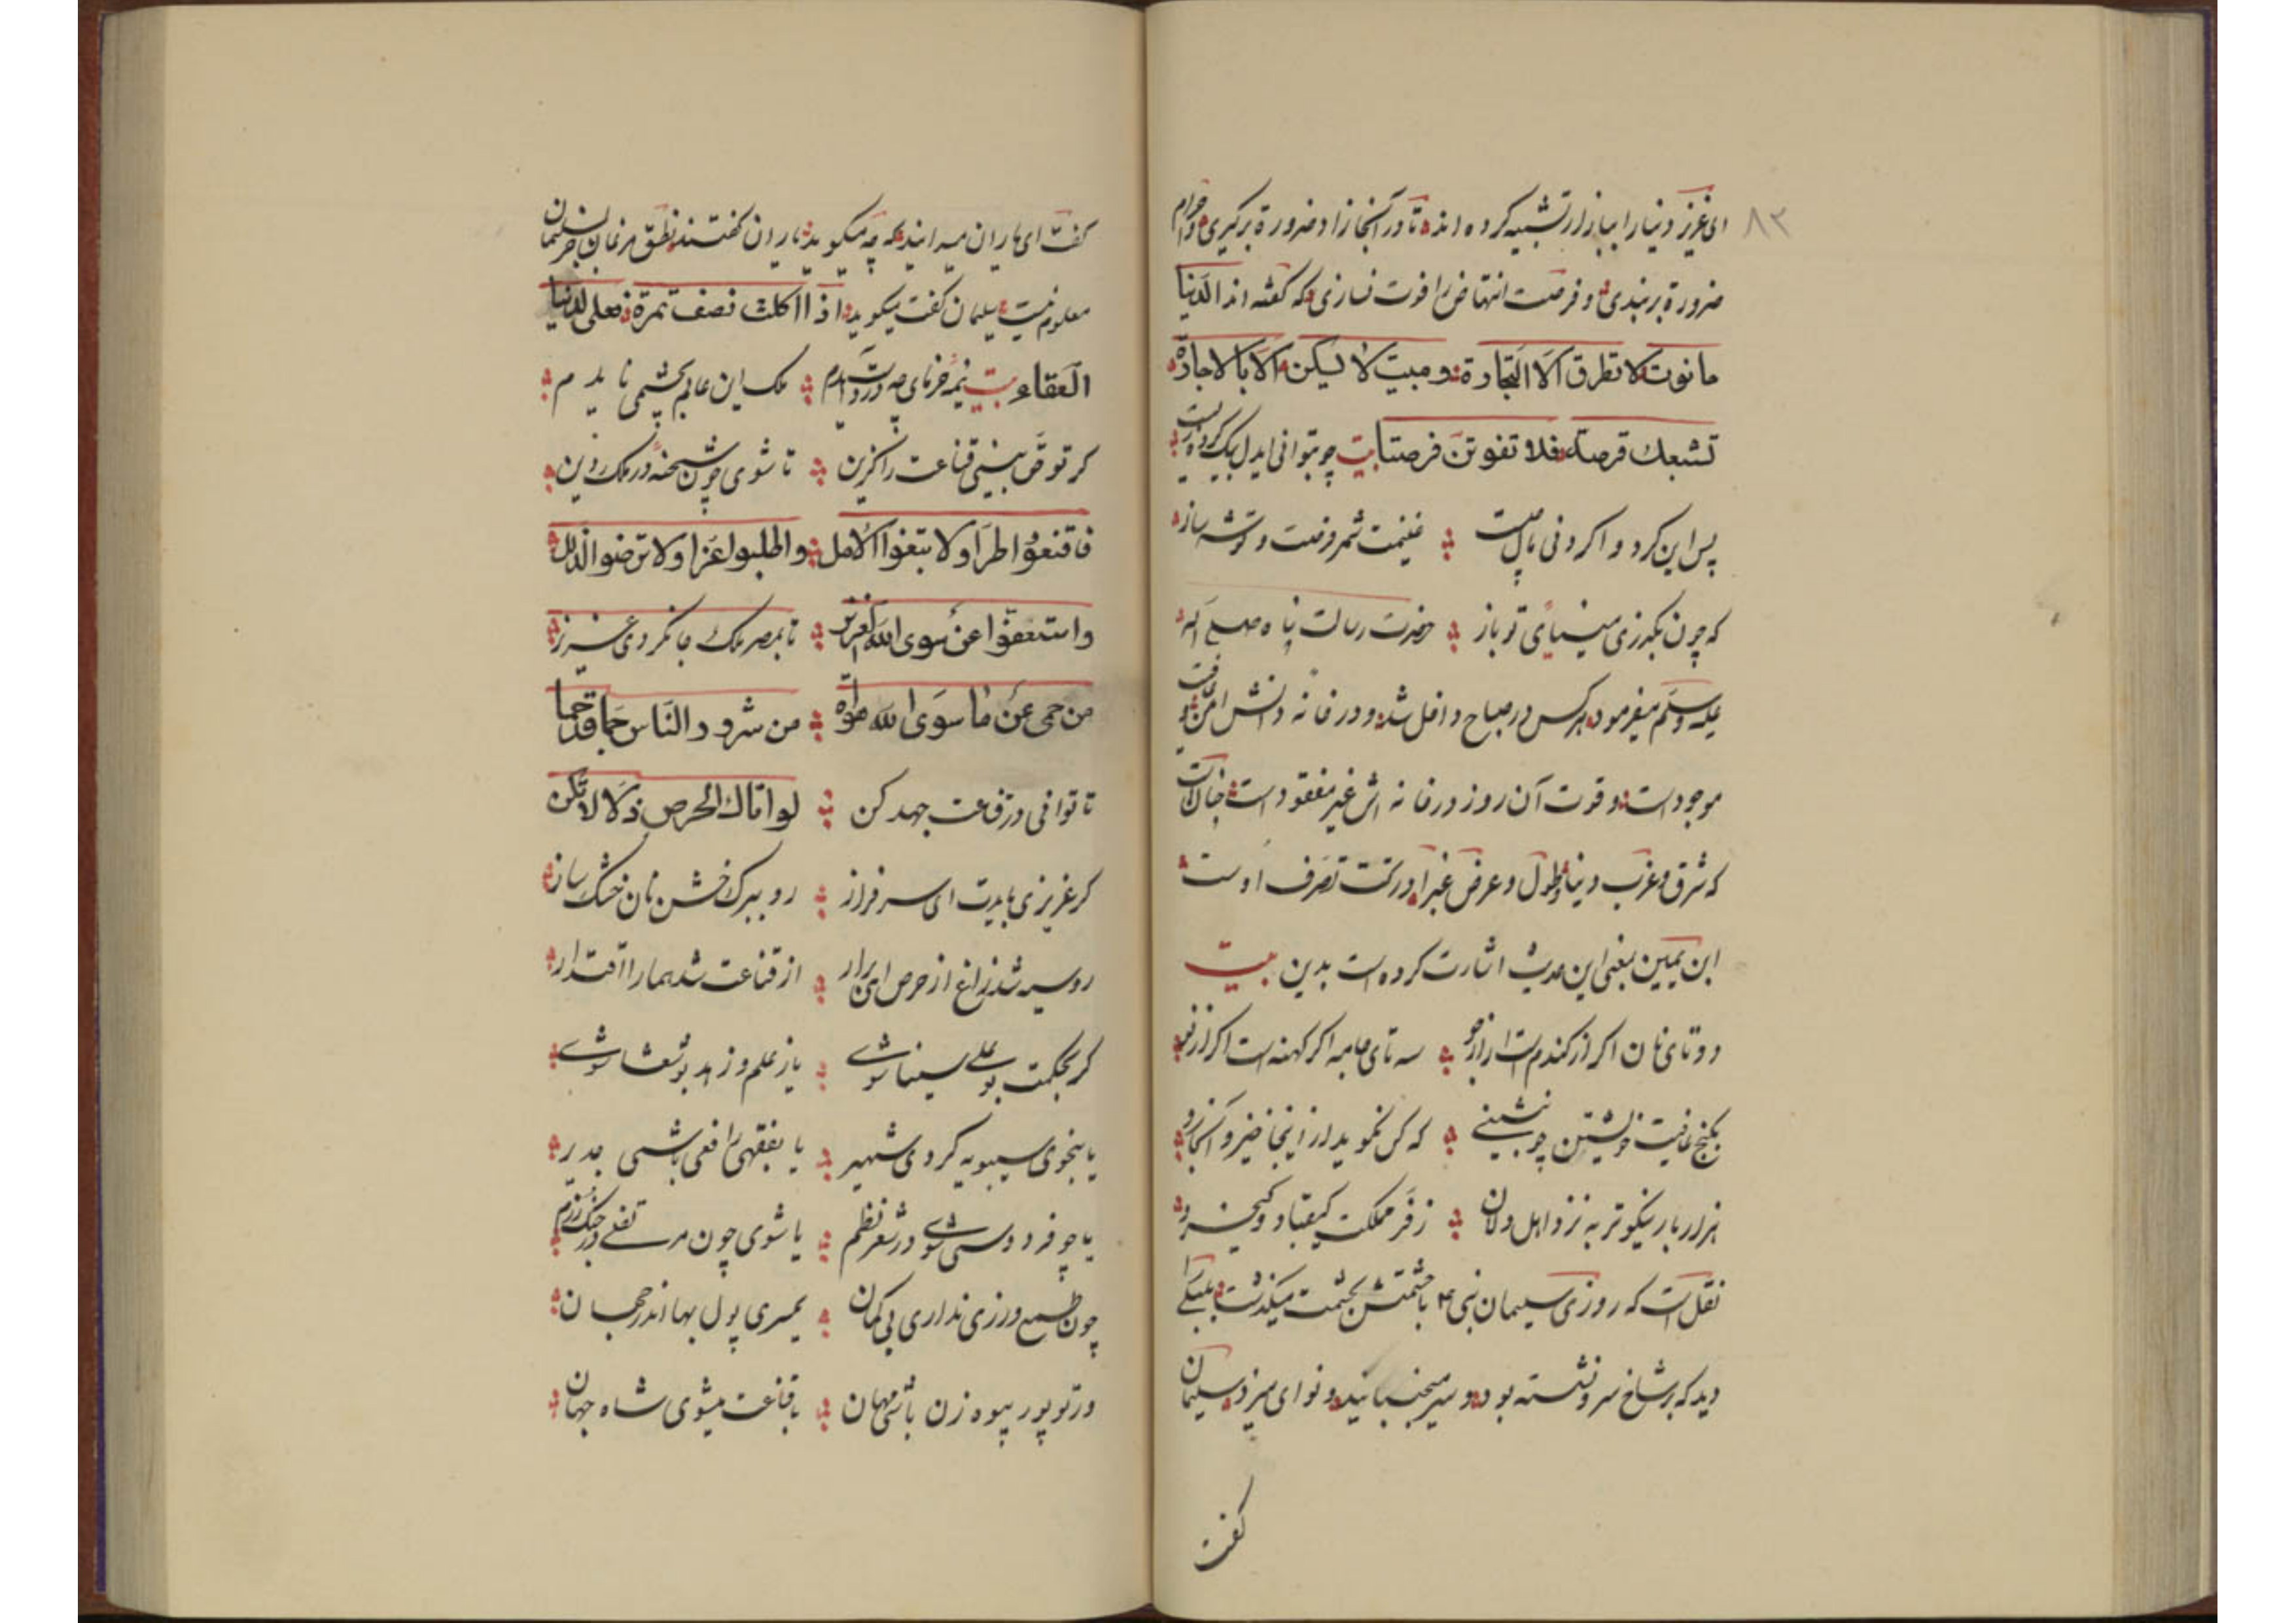 ۸۳
ای عزیز دنیا را ببازار تشبیه کرده اند تا در آنجا زاد ضرورة برگیری و احرام
ضرورة بربندی و فرصت انتهاض را فوت نسازی که گفته اند الدنیا
مانوت لا تطرق الا التجارة ومبیت لا لیکن الا بالاجازة
تشبعك قرصة فلا تفوتن فرصتا بیت چو بتوانی ایدل
پس این کرد و اکر دنی غنیمت شمر فرصت و توشه ساز
که چون بگذری می نیایی تو باز حضرت رسالت پناه صلی الله
علیه وسلم میفرمود هرکس در صباح داخل شد و در خانه دانش امن
موجود است و قوت آن روز در خانه اش غیر مفقود است چنانست
که شرق و غرب دنیا و طول و عرض غبرا در تحت تصرف اوست
ابن یمین بمعنی این حدیث اشارت کرده است بدین بیت
دوتای نان اکر از کندم است یا از جو سه تای جامه اکر کهنه است اکر از نو
بکنج عافیت خویشتن چو بنشینی که کس نکوید از اینجا خیز و آنجا رو
هزار بار نیکوتر به نزد اهل دلان ز فر مملکت کیقباد و کیخسرو
نقل است که روزی سلیمان نبی ع م با حشمتش بحشمت میکذشت بلبلی را
دید که بر شاخ سرو نشسته بود و سر میجنبانید و نوای میزد سلیمان
کفت
کفت ای یاران میدانید که چه میکوید یاران کفتند نطق مرغان جز سلیمان
معلوم نیست سلیمان کفت میکوید اذا اکلت نصف تمرة فعلی الدنیا
العفاء بیت نیمه خرمای چه در دست آمدم ملک این عالم بچشمی نایدم
کر تو قص بینی قناعت را کزین تا شوی چون شحنه در ملک دین
فاقنعوا طرا ولا تبغوا الامل واطلبوا عزا ولا ترضوا الذلل
واستعفوا عن سوی الله العزیز تا بمصر ملک جا نکردی عزیز
من حمی عن ما سوی الله من شرور الناس جا قد حما
تا توانی در قناعت جهد کن لو اتاك الحرص ذلا لا تکن
کر عزیزی بایدت ای سرفراز رو ببرک خشن نان خشک ساز
روسیه شد زاغ از حرص ای برار از قناعت شد هما را اقتدار
کر بحکمت بوعلی سینا شوی یاز علم و زهد بو شعثا شوی
یا بنحوی سیبویه کردی شهیر یا بفقهی رافعی باشی جدیر
یا چو فردوسی شوی در شعر نظم یا شوی چون مرتضی در جنک رزم
چون طمع ورزی نداری بی کمان یمسری پول بها اندر جهان
ور تو پور بیوه زن باشی مهان با قناعت میشوی شاه جهان